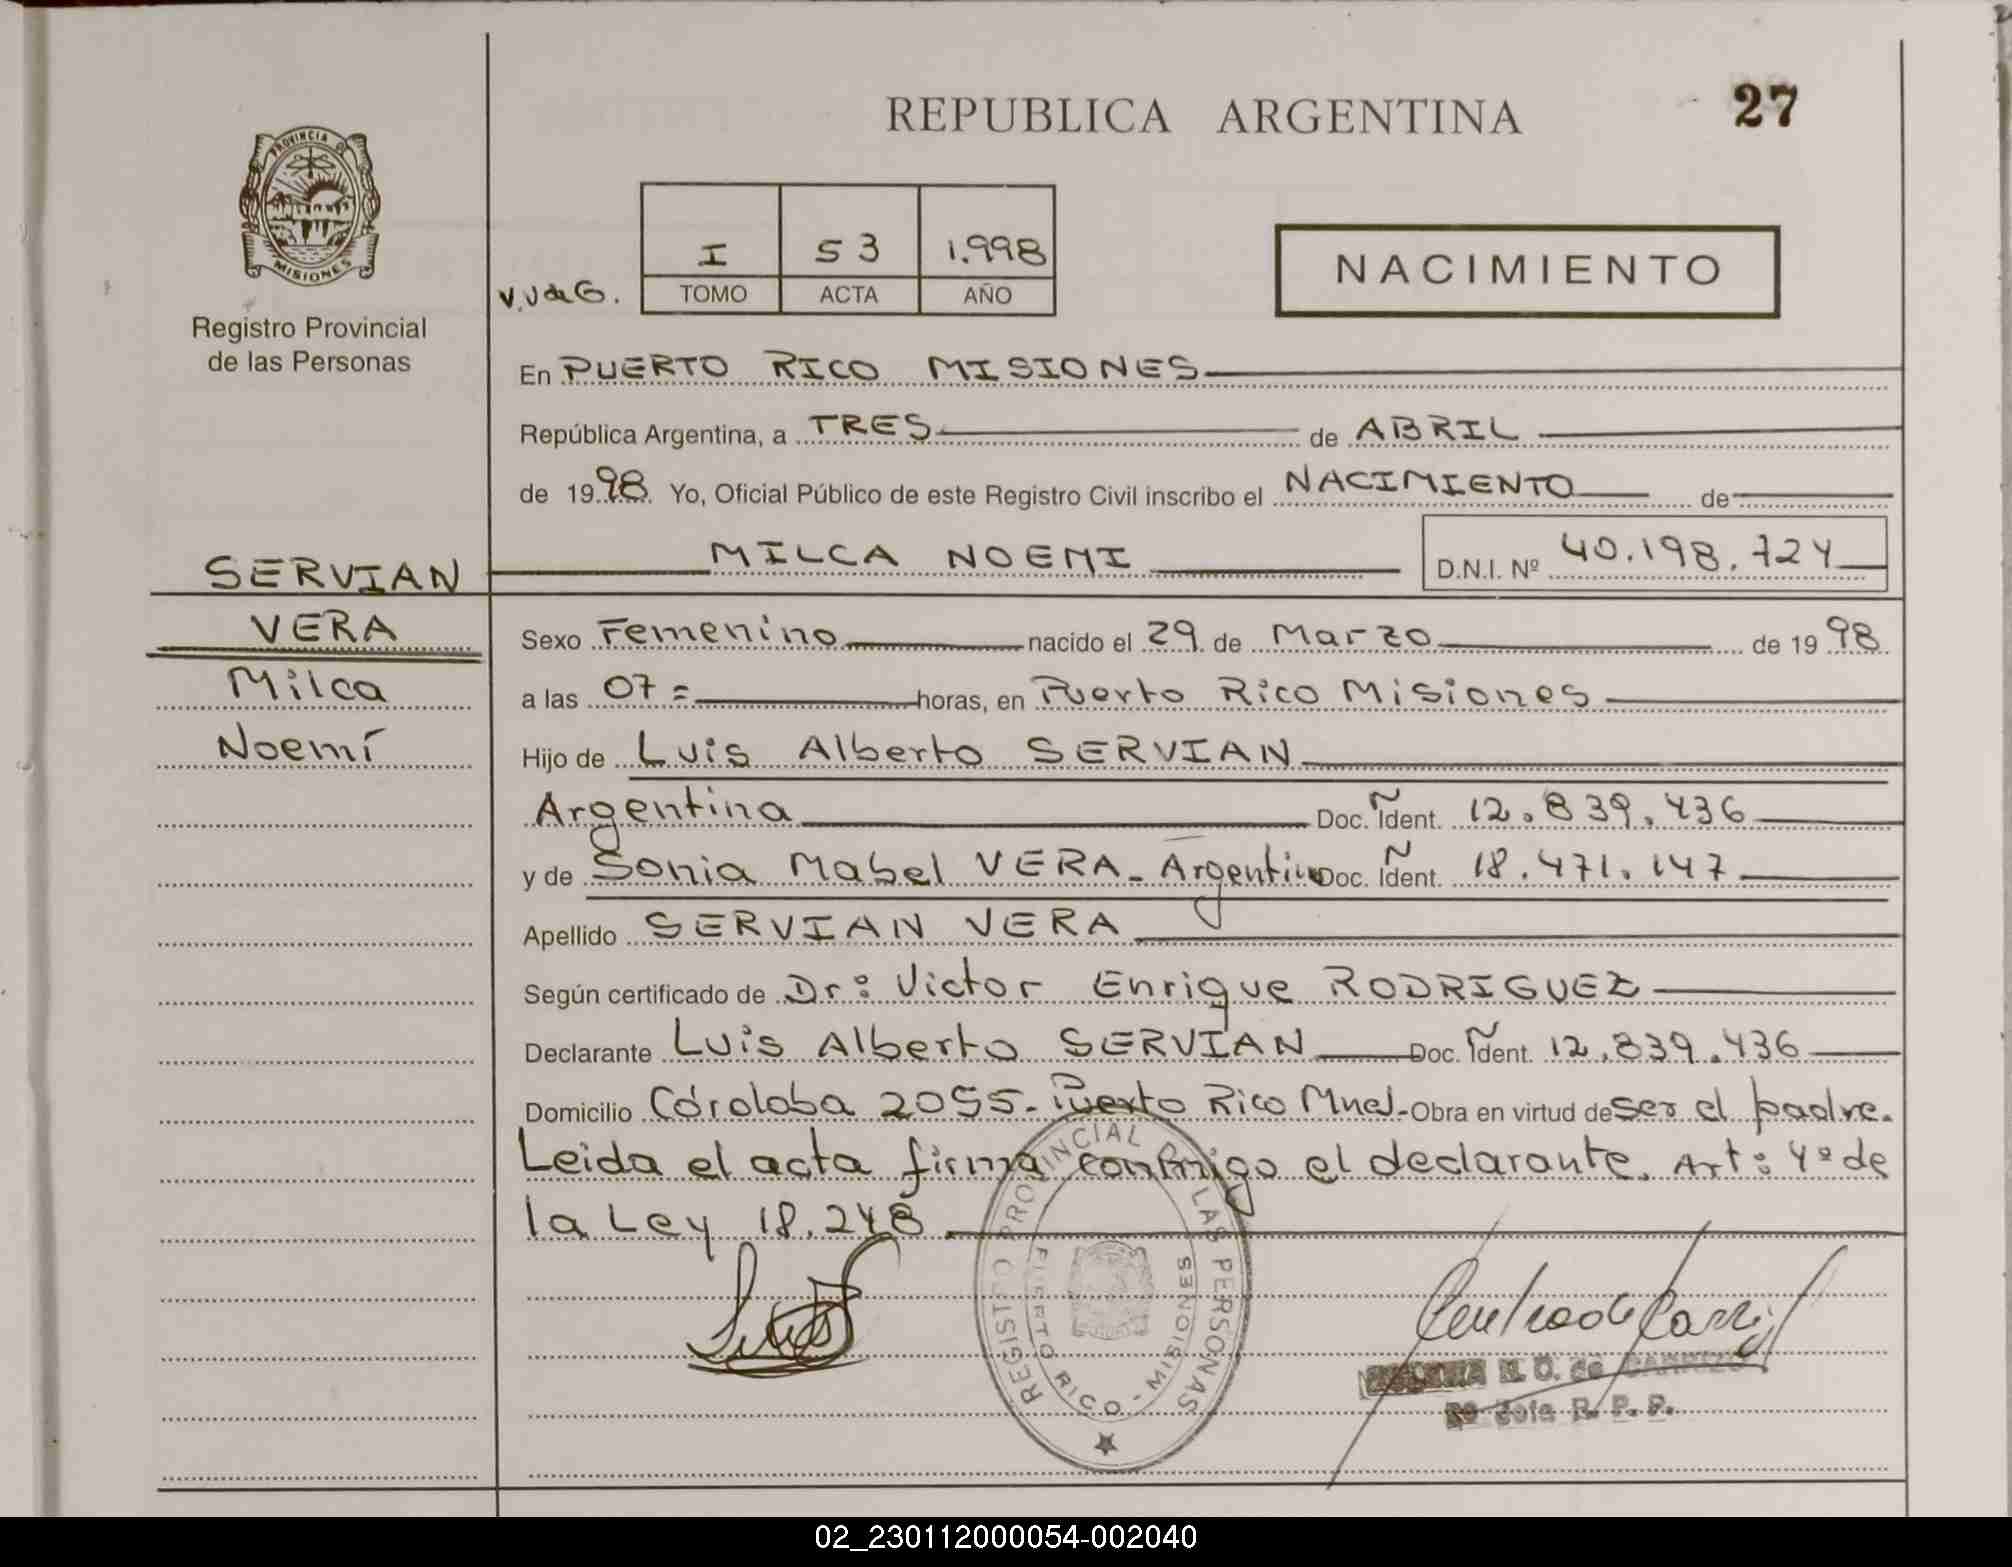 REPUBLICA ARGENTINA
27
PROVINCIA DE
MISIONES
Registro Provincial
de las Personas
V.V de G.
I 53 1.998
TOMO ACTA AÑO
NACIMIENTO
En PUERTO RICO MISIONES
República Argentina, a TRES de ABRIL
de 1998. Yo, Oficial Público de este Registro Civil inscribo el NACIMIENTO de
MILCA NOEMI D.N.I. Nº 40.198.724
SERVIAN
VERA
Milca
Noemí
Sexo Femenino nacido el 29 de Marzo de 1998
a las 07= horas, en Puerto Rico Misiones
Hijo de Luis Alberto SERVIAN
Argentina Doc. Ident. 12.839.436
y de Sonia Mabel VERA - Argentino Doc. Ident. 18.471.147
Apellido SERVIAN VERA
Según certificado de Dr: Victor Enrique RODRIGUEZ
Declarante Luis Alberto SERVIAN Doc. Ident. 12.839.436
Domicilio Córdoba 2055- Puerto Rico Mnes- Obra en virtud de ser el padre.
Leida el acta firma conmigo el declarante. Art: 4º de
la Ley 18.248
REGISTRO PROVINCIAL DE LAS PERSONAS
PUERTO RICO - MISIONES
R. O. de CARRIZO
Jefa R. P. P.
02_230112000054-002040